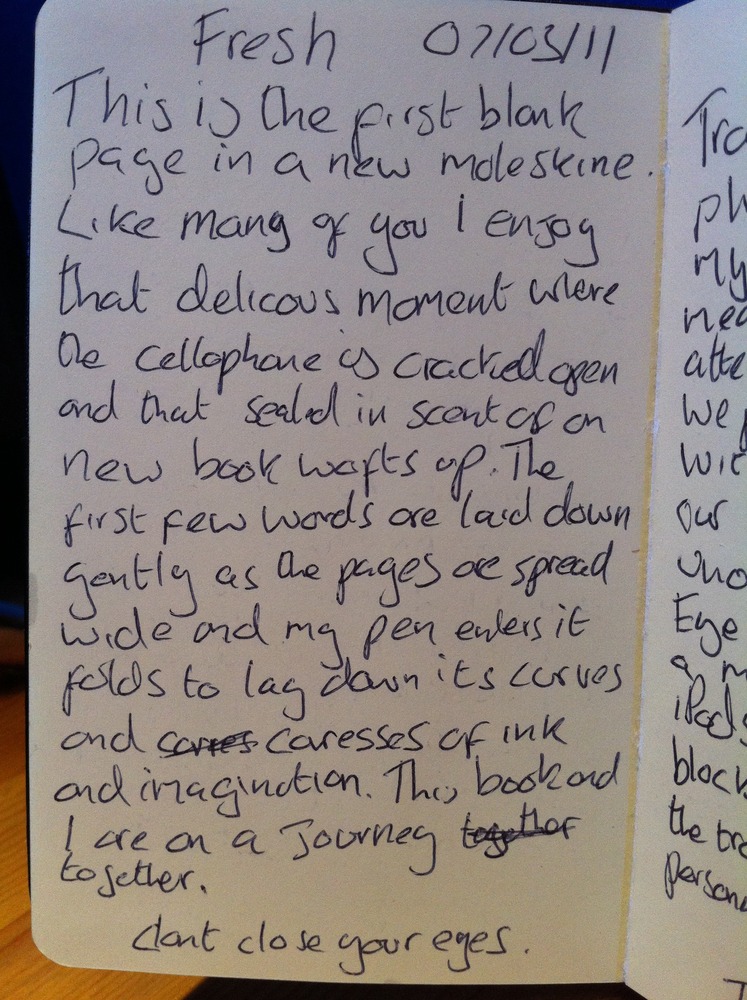 Fresh 07/03/11
This is the first blank
page in a new moleskine.
Like many of you I enjoy
that delicous moment where
the cellophane is cracked open
and that sealed in scent of an
new book wafts up. The
first few words are laid down
gently as the pages are spread
wide and my pen enters it
folds to lay down its curves
and carres caresses of ink
and imagination. This book and
I are on a Journey together
together.
dont close your eyes.
Tra
ph
my
nea
atte
we p
wit
our
una
Eye
a m
iPods
block
the tra
persona